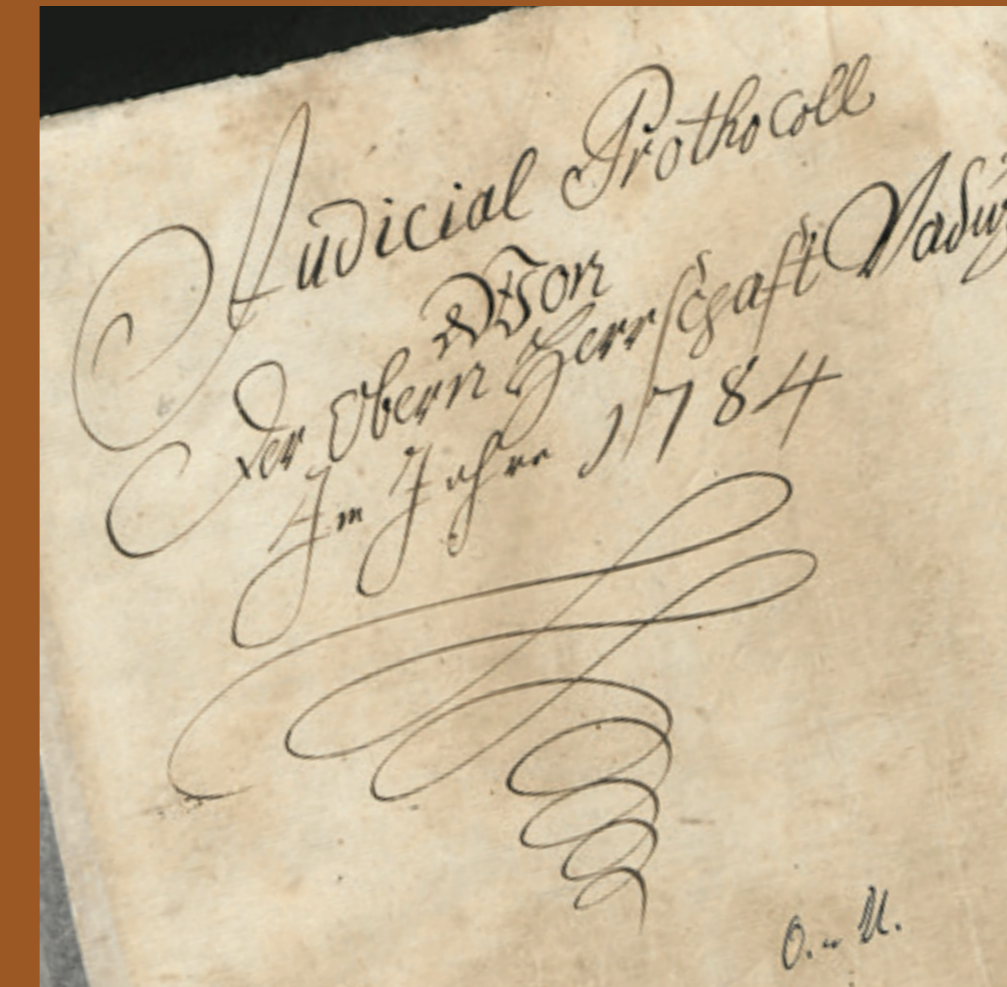 Judicial Prothocoll
Von
Der Obern Herrschaft Vaduz
Im Jahre 1784
O. u U.